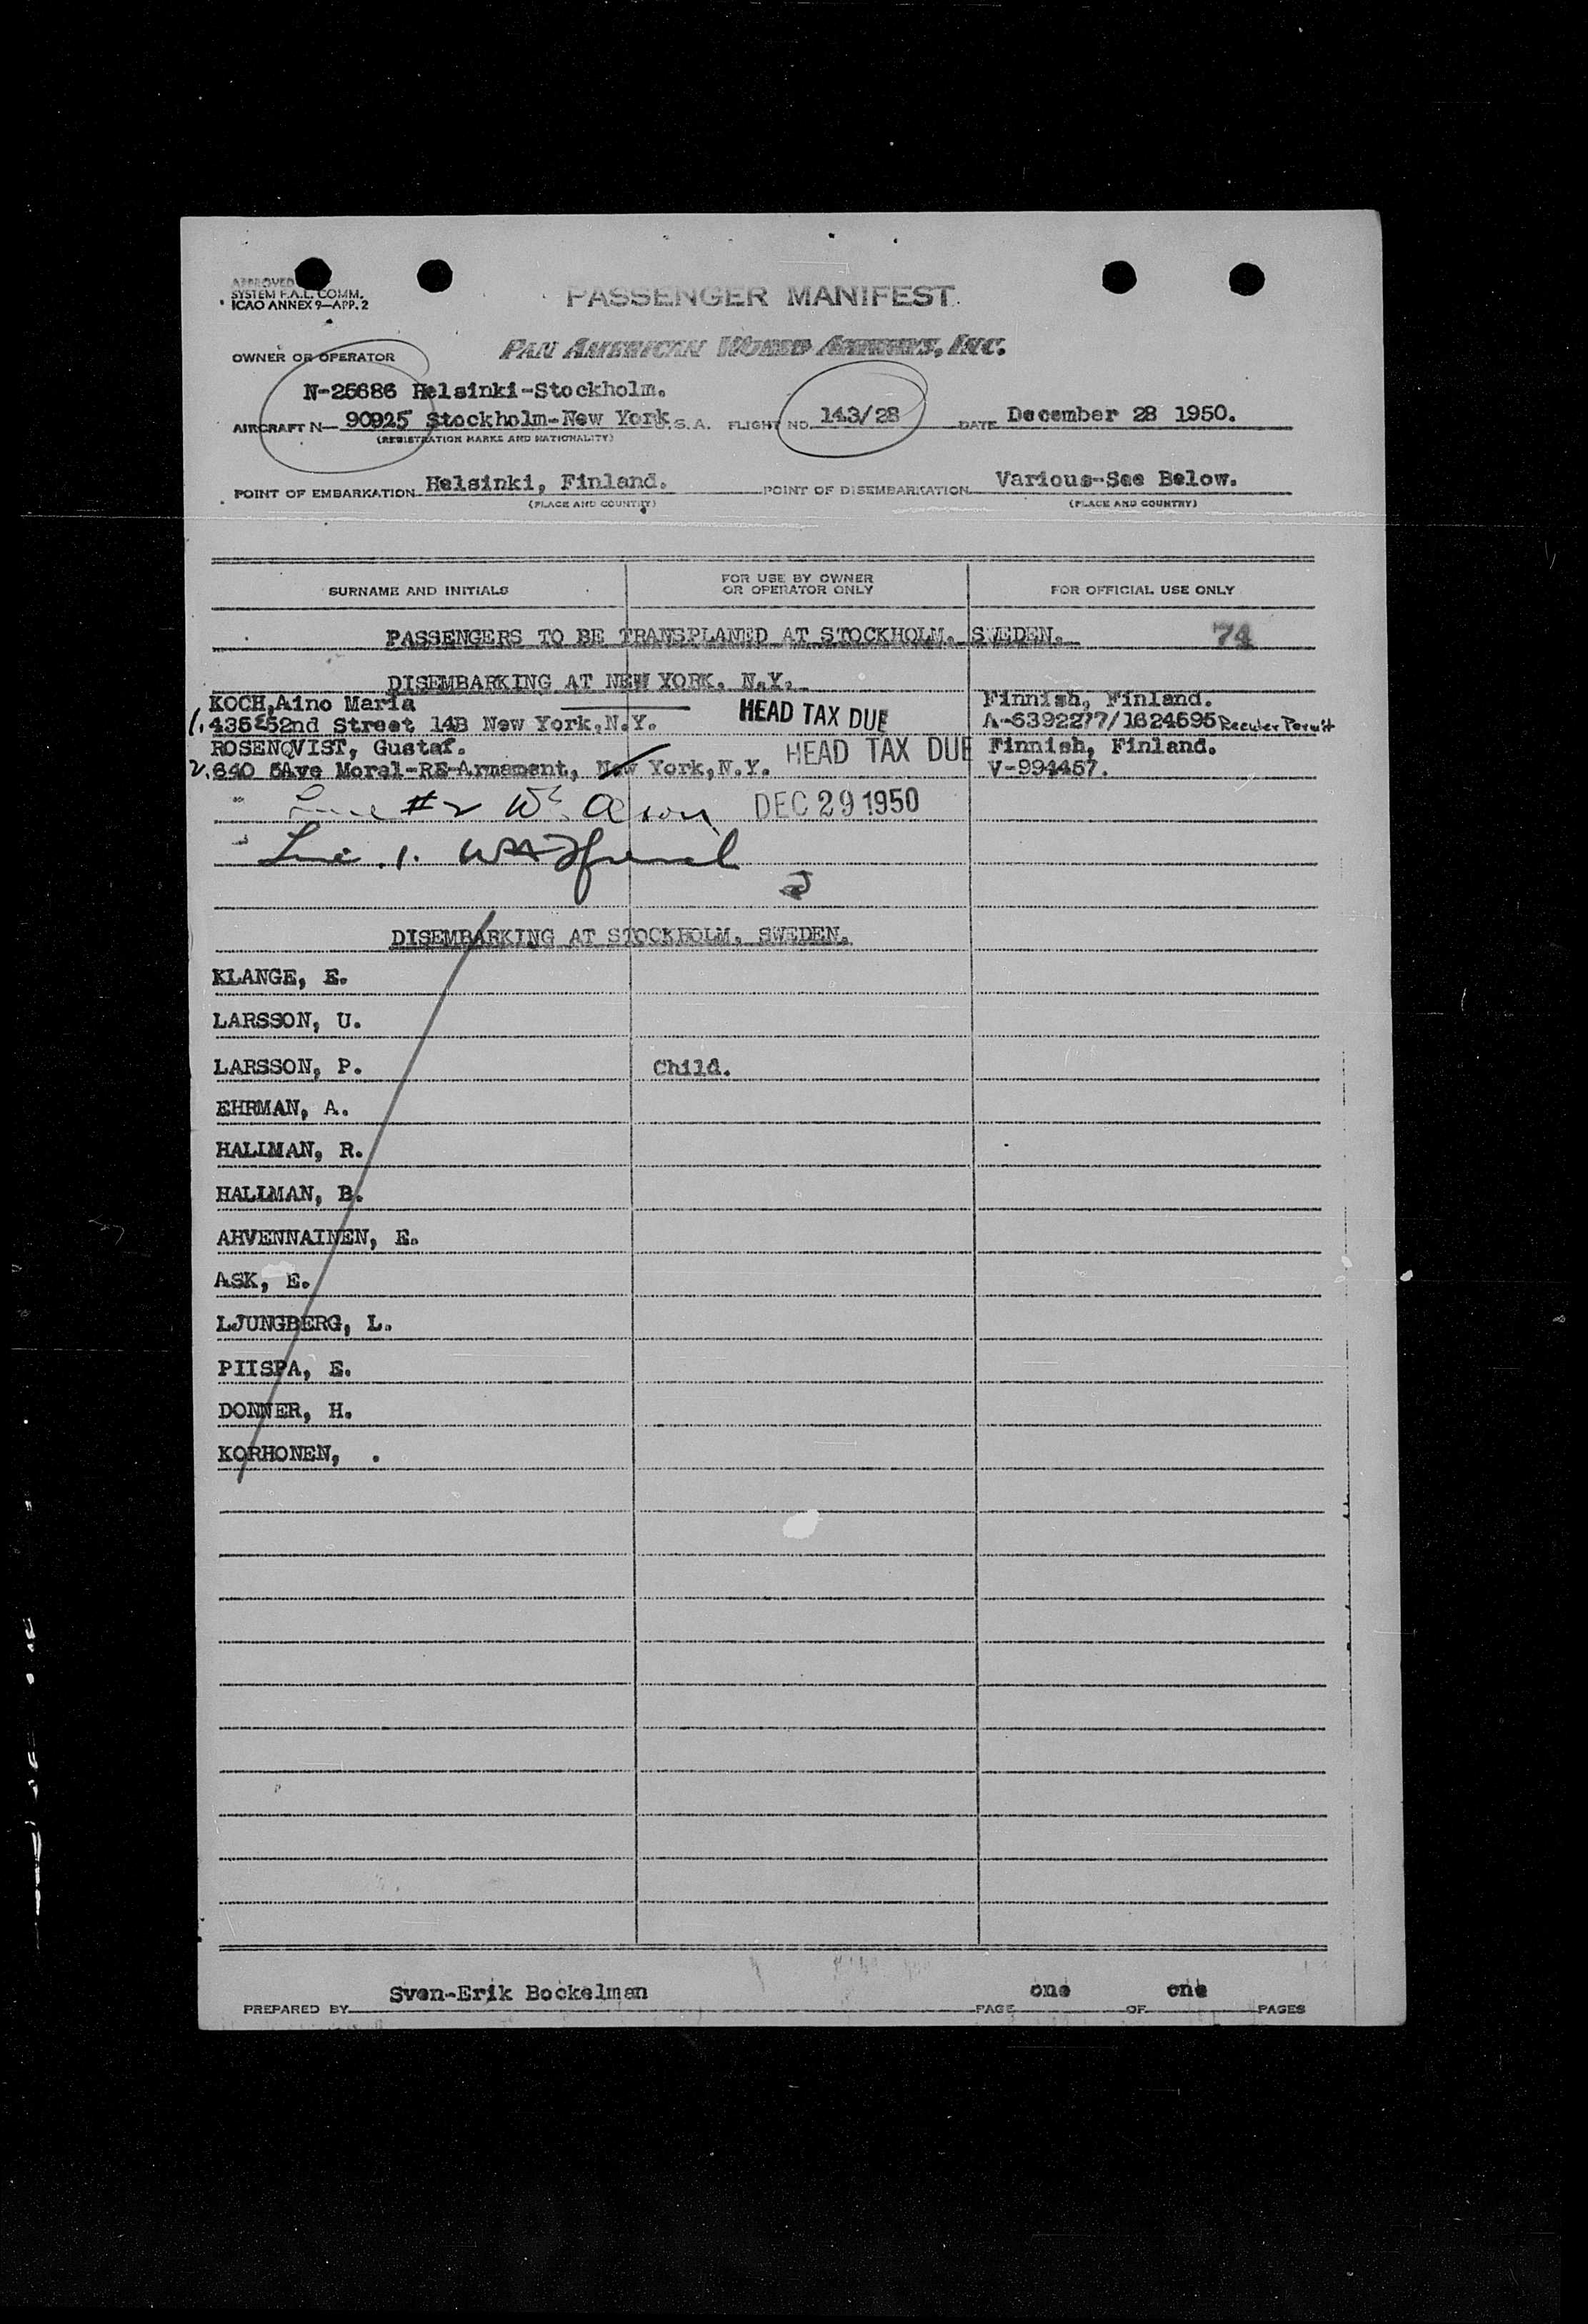 APPROVED
SYSTEM F.A.L. COMM.
ICAO ANNEX 9—APP. 2
PASSENGER MANIFEST
OWNER OR OPERATOR
PAN AMERICAN WORLD AIRWAYS, INC.
N-25686 Helsinki-Stockholm.
AIRCRAFT N— 90925 Stockholm-New York U.S.A. FLIGHT NO. 143/28 DATE December 28 1950.
(REGISTRATION MARKS AND NATIONALITY)
POINT OF EMBARKATION Helsinki, Finland. POINT OF DISEMBARKATION Various-See Below.
(PLACE AND COUNTRY) (PLACE AND COUNTRY)
SURNAME AND INITIALS FOR USE BY OWNER OR OPERATOR ONLY FOR OFFICIAL USE ONLY
PASSENGERS TO BE TRANSPLANED AT STOCKHOLM, SWEDEN. 74
DISEMBARKING AT NEW YORK, N.Y.
KOCH,Aino Maria Finnish, Finland.
1. 435E52nd Street 14B New York,N.Y. HEAD TAX DUE A-6392277/1624595 Reenter Permit
ROSENQVIST, Gustaf. HEAD TAX DUE Finnish, Finland.
2. 640 5Ave Moral-RE-Armament, New York,N.Y. V-994457.
Line #2 DEC 29 1950
Line 1.
DISEMBARKING AT STOCKHOLM, SWEDEN.
KLANGE, E.
LARSSON, U.
LARSSON, P. Child.
EHRMAN, A.
HALLMAN, R.
HALLMAN, B.
AHVENNAINEN, E.
ASK, E.
LJUNGBERG, L.
PIISPA, E.
DONNER, H.
KORHONEN, .
PREPARED BY Sven-Erik Bockelman PAGE one OF one PAGES